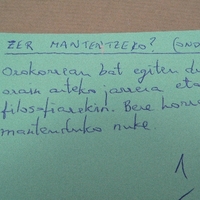 ZER MANTENTZEKO? (OND
Orokorrean bat egiten du
orain arteko jarrera eta
filosofiarekin. Bere horre
mantenduko nuke.
1